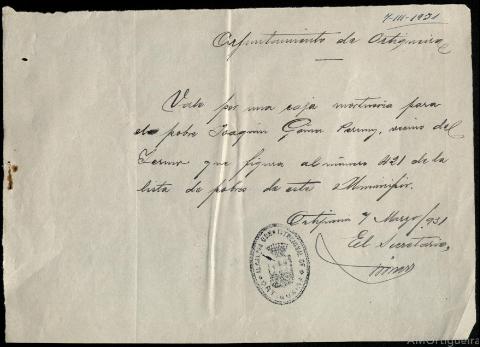 7-III-1931
Ayuntamiento de Ortigueira
Vale por una caja mortuoria para
el pobre Joaquin Gómez vecino del
que figura al número 421 de la
lista de pobres de este Municipio.
Ortigueira 7 Marzo/931
El Secretario,
AMOrtigueira